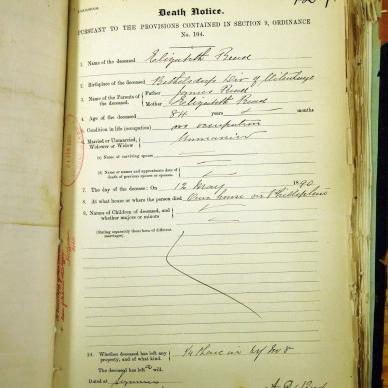 Death Notice.
PURSUANT TO THE PROVISIONS CONTAINED IN SECTION 9, ORDINANCE
No. 104.
1. Name of the deceased Elizabeth Read
2. Birthplace of the deceased Bethelsdorp Div of Uitenhage
3. Name of the Parents of the deceased. Father James Read
Mother Elizabeth Read
4. Age of the deceased 84 years months
5. Condition in life (occupation) no occupation
6. Married or Unmarried, Widower or Widow Unmarried
(a) Name of surviving spouse
(b) Name or names and approximate date of death of previous spouse or spouses
7. The day of the decease: On 12 May 1890
8. At what house or where the person died Own house in Philipton
9. Names of Children of deceased, and whether majors or minors
(Stating separately those born of different marriages).
10. Whether deceased has left any property, and of what kind.
The deceased has left a will.
Dated at Seymour